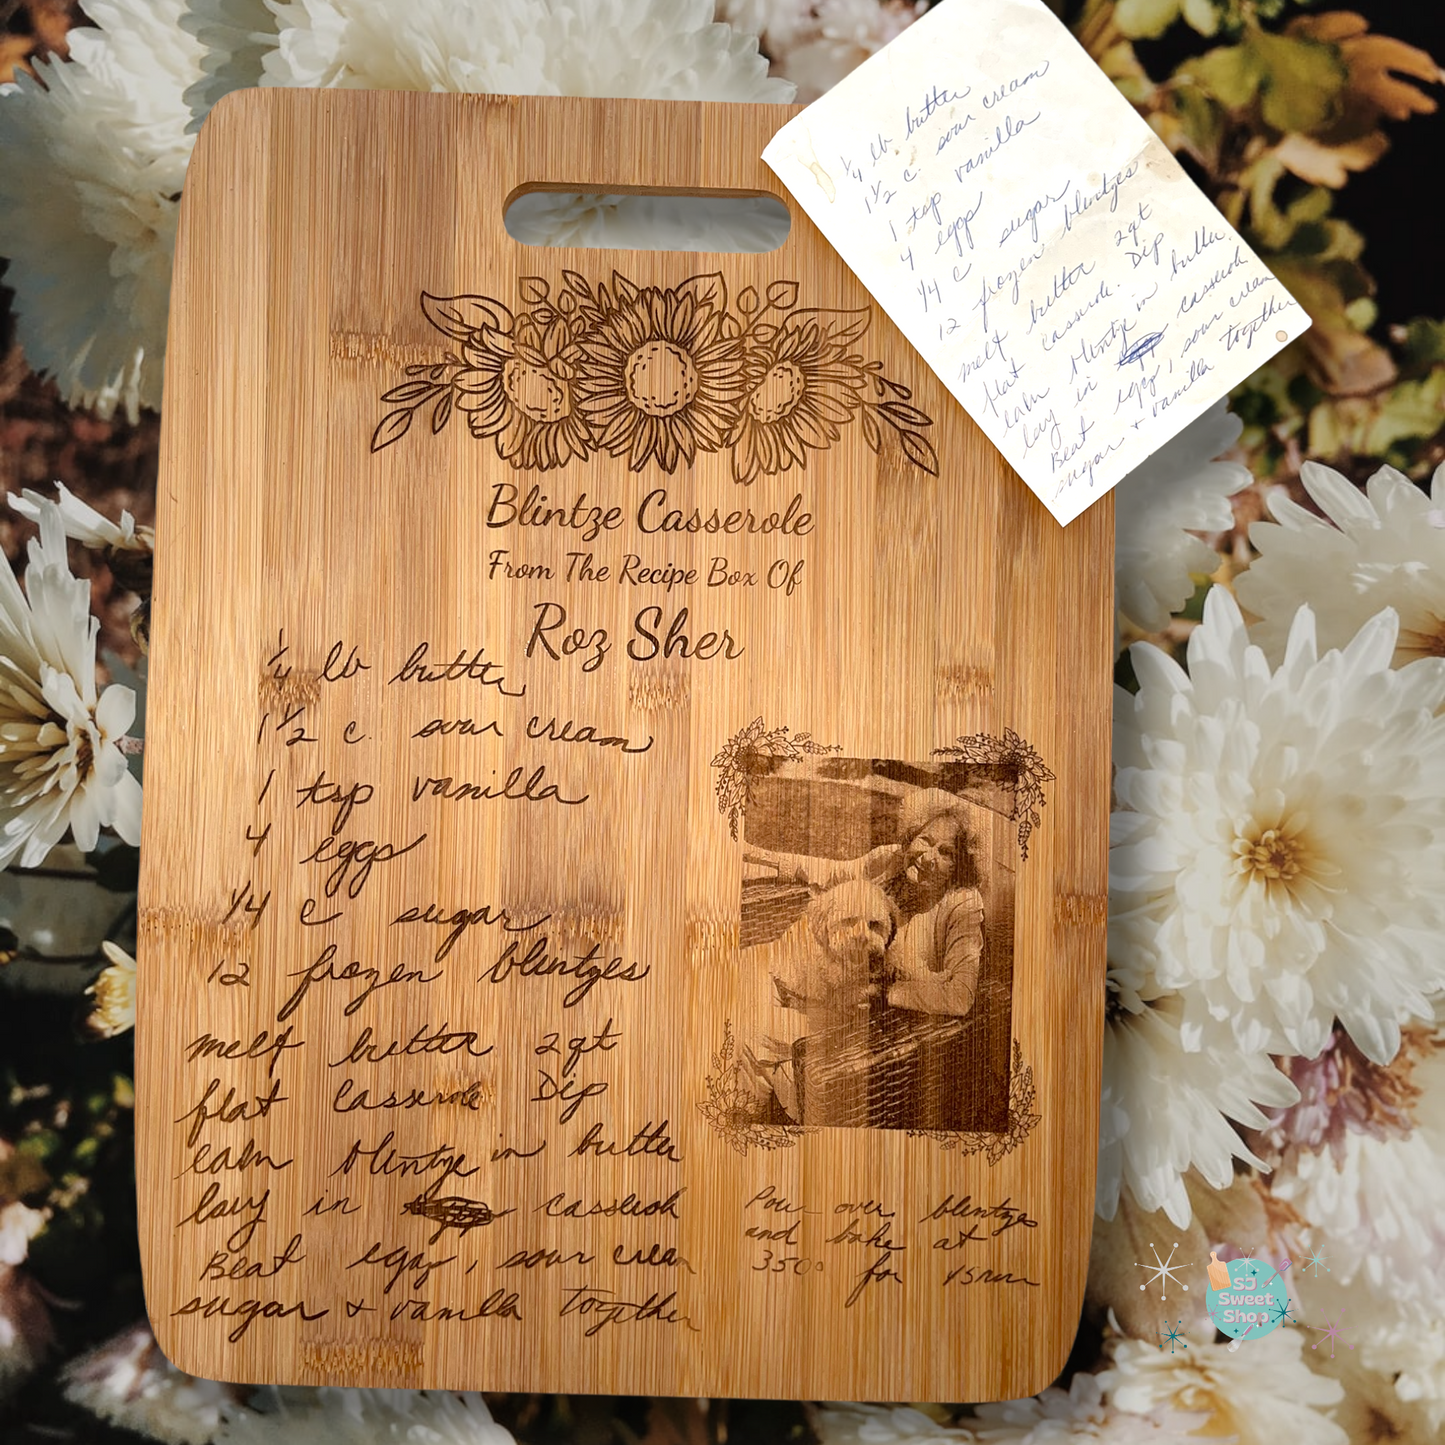 Blintze Casserole
From The Recipe Box Of
Roz Sher
1/4 lb butter
1 1/2 c. sour cream
1 tsp vanilla
4 eggs
1/4 c sugar
12 frozen blintzes
melt butter 2qt
flat casserole Dip
each blintze in butter
lay in casserole
Beat eggs, sour cream
sugar + vanilla together
Pour over blintzes
and bake at
350° for 45 min
1/4 lb butter
1 1/2 c. sour cream
1 tsp vanilla
4 eggs
1/4 c sugar
12 frozen blintzes
melt butter 2qt
flat casserole. Dip
each blintze in butter
lay in casserole
Beat eggs, sour cream
sugar + vanilla together
SJ
Sweet
Shop